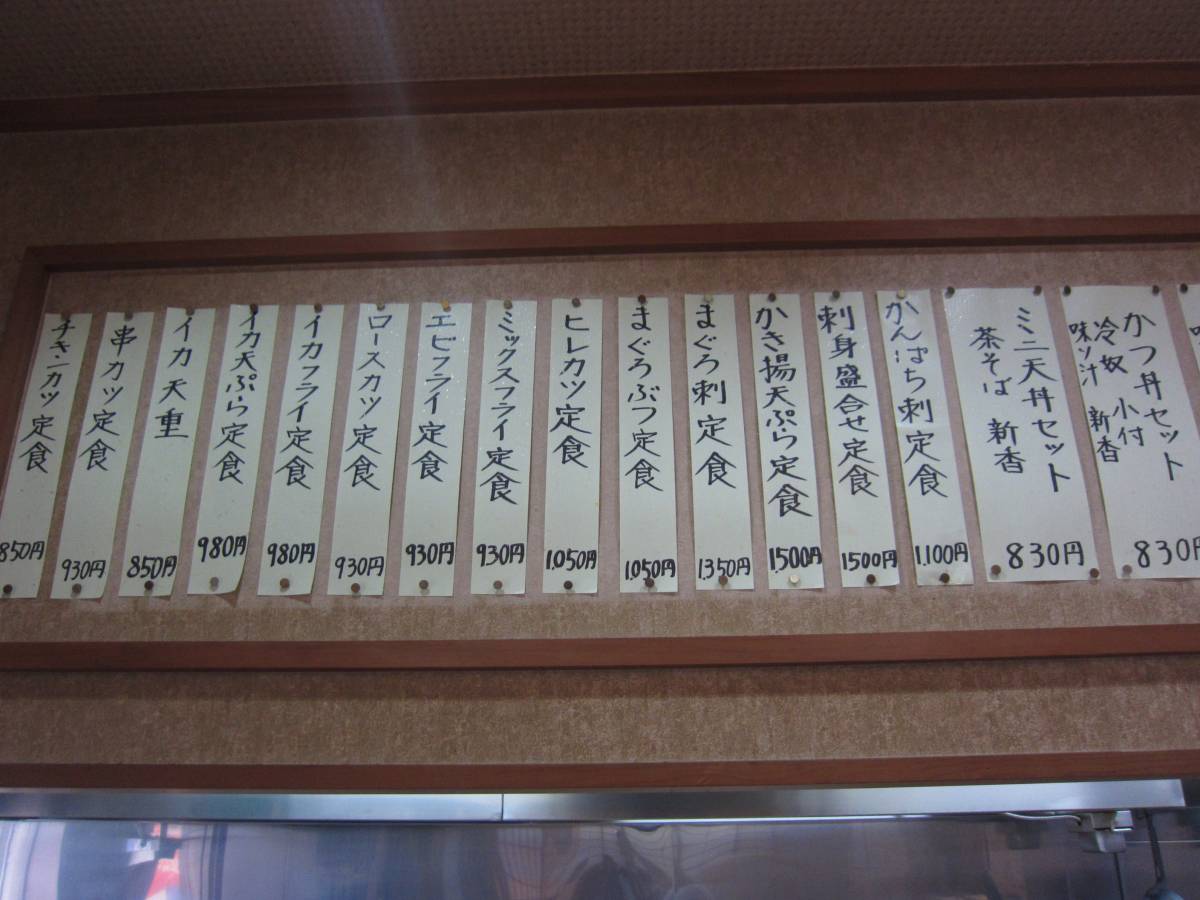 かつ丼セット
冷奴 小付
味ソ汁 新香
830円
ミニ天丼セット
茶そば 新香
830円
かんぱち刺定食
1.100円
刺身盛合せ定食
1500円
かき揚天ぷら定食
1.500円
まぐろ刺定食
1.350円
まぐろぶつ定食
1.050円
ヒレカツ定食
1.050円
ミックスフライ定食
930円
エビフライ定食
930円
ロースカツ定食
930円
イカフライ定食
980円
イカ天ぷら定食
980円
イカ天重
850円
串カツ定食
930円
チキンカツ定食
850円